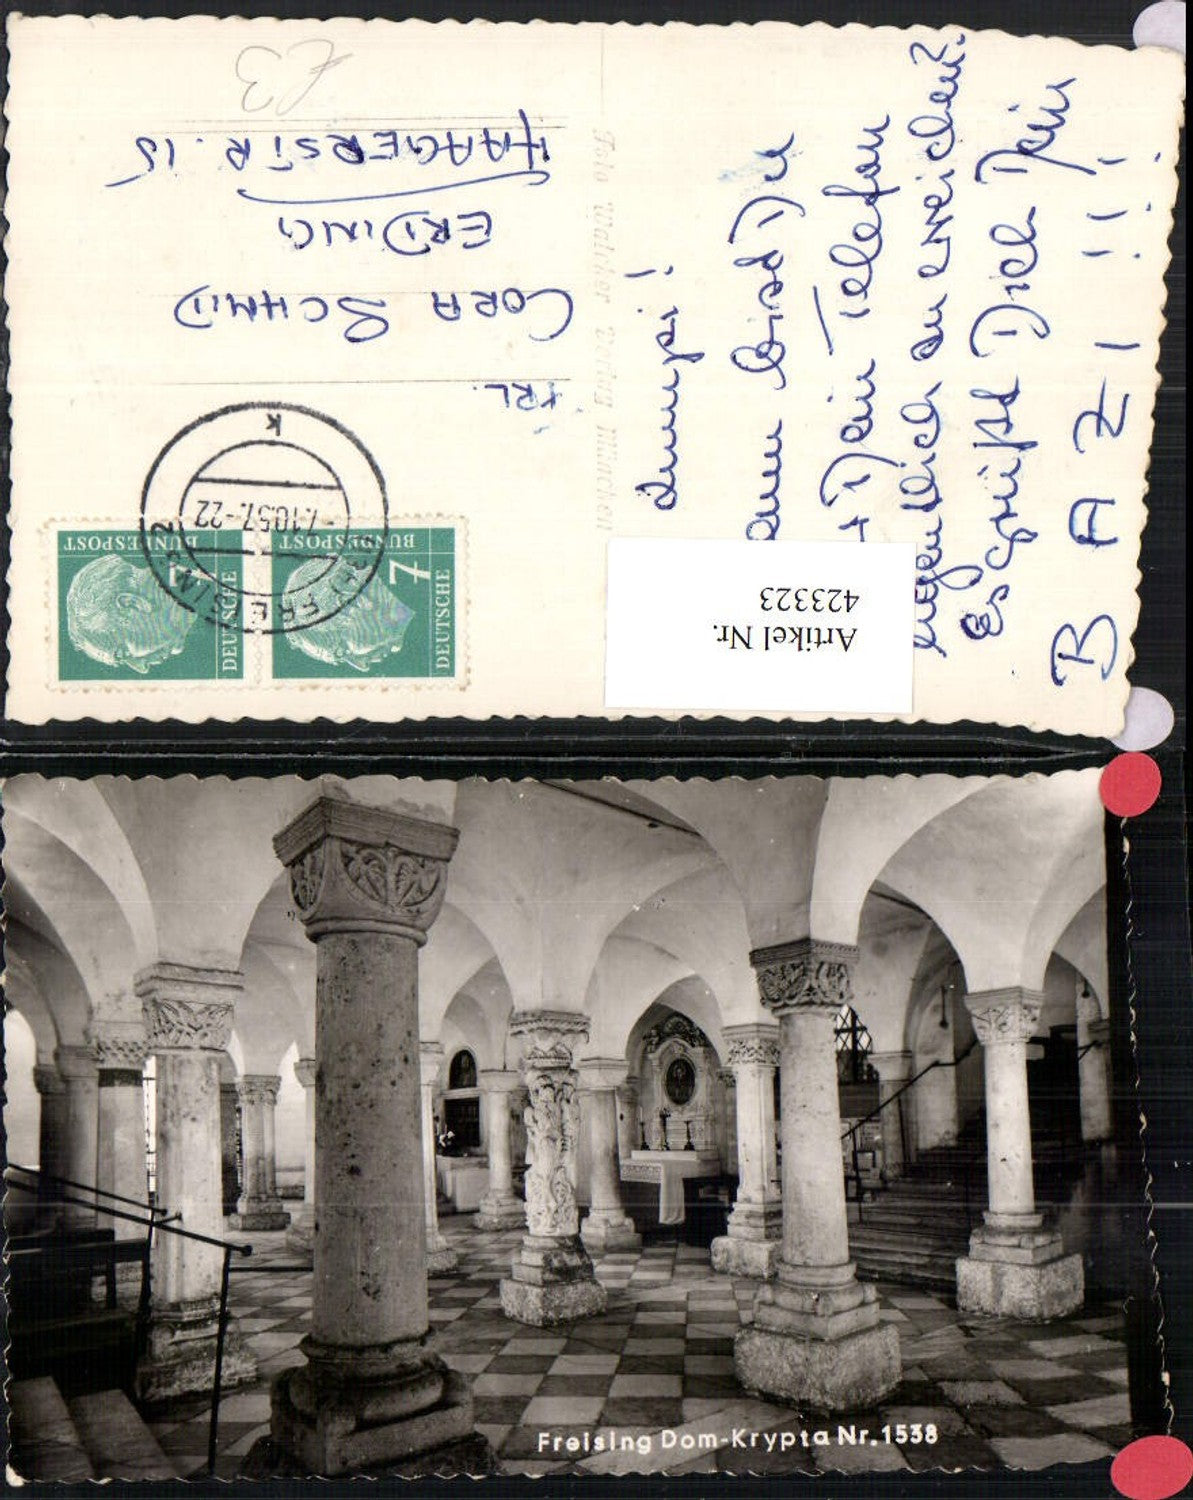 £3
FRL.
CORA SCHMID
ERDING
HAAGERSTR. 15
DEUTSCHE
BUNDESPOST
7
DEUTSCHE
BUNDESPOST
FREISING 2
-7.10.57.-22
k
Foto Walcker Verlag München
bist Du
Dein Telefon
zu erreichen?
Es grüßt Dich Dein
BAZI!!!
Artikel Nr.
423323
Freising Dom-Krypta Nr. 1538